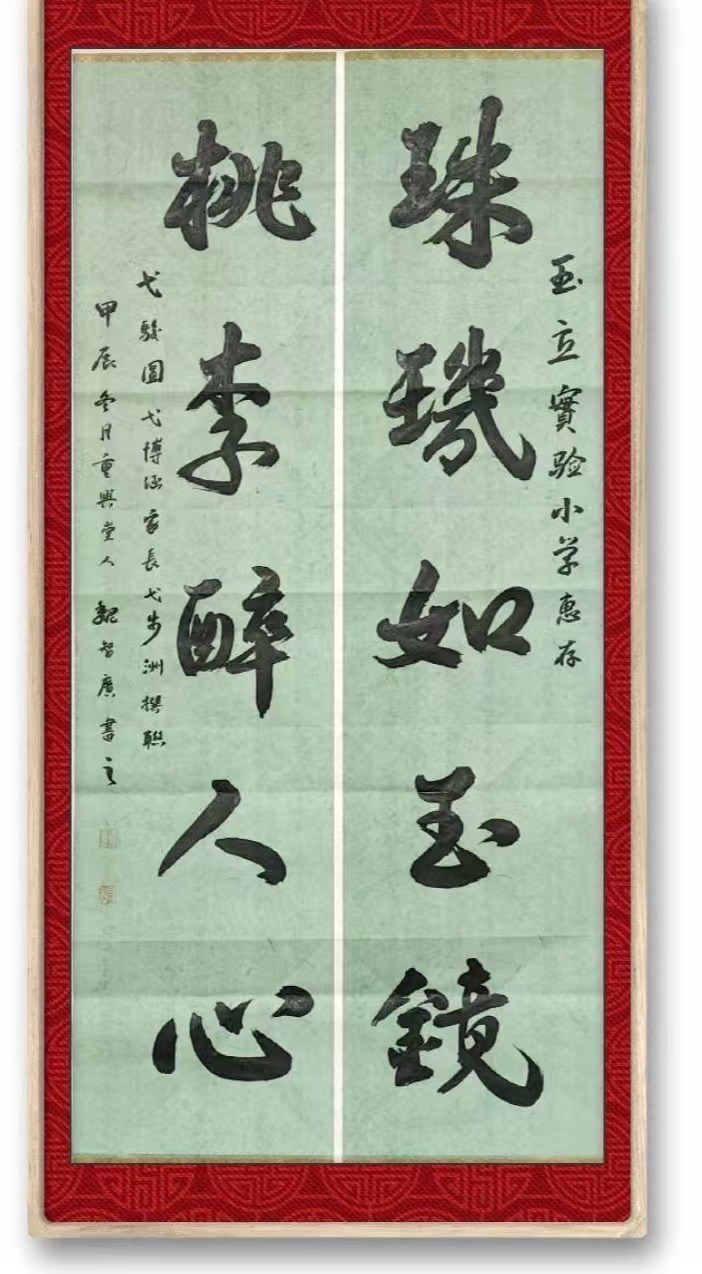 玉立實验小学惠存
珠璣如玉鏡
桃李醉人心
弋駿圖弋博涵家長弋步洲撰聯
甲辰冬月重興堂人 魏智廣書之